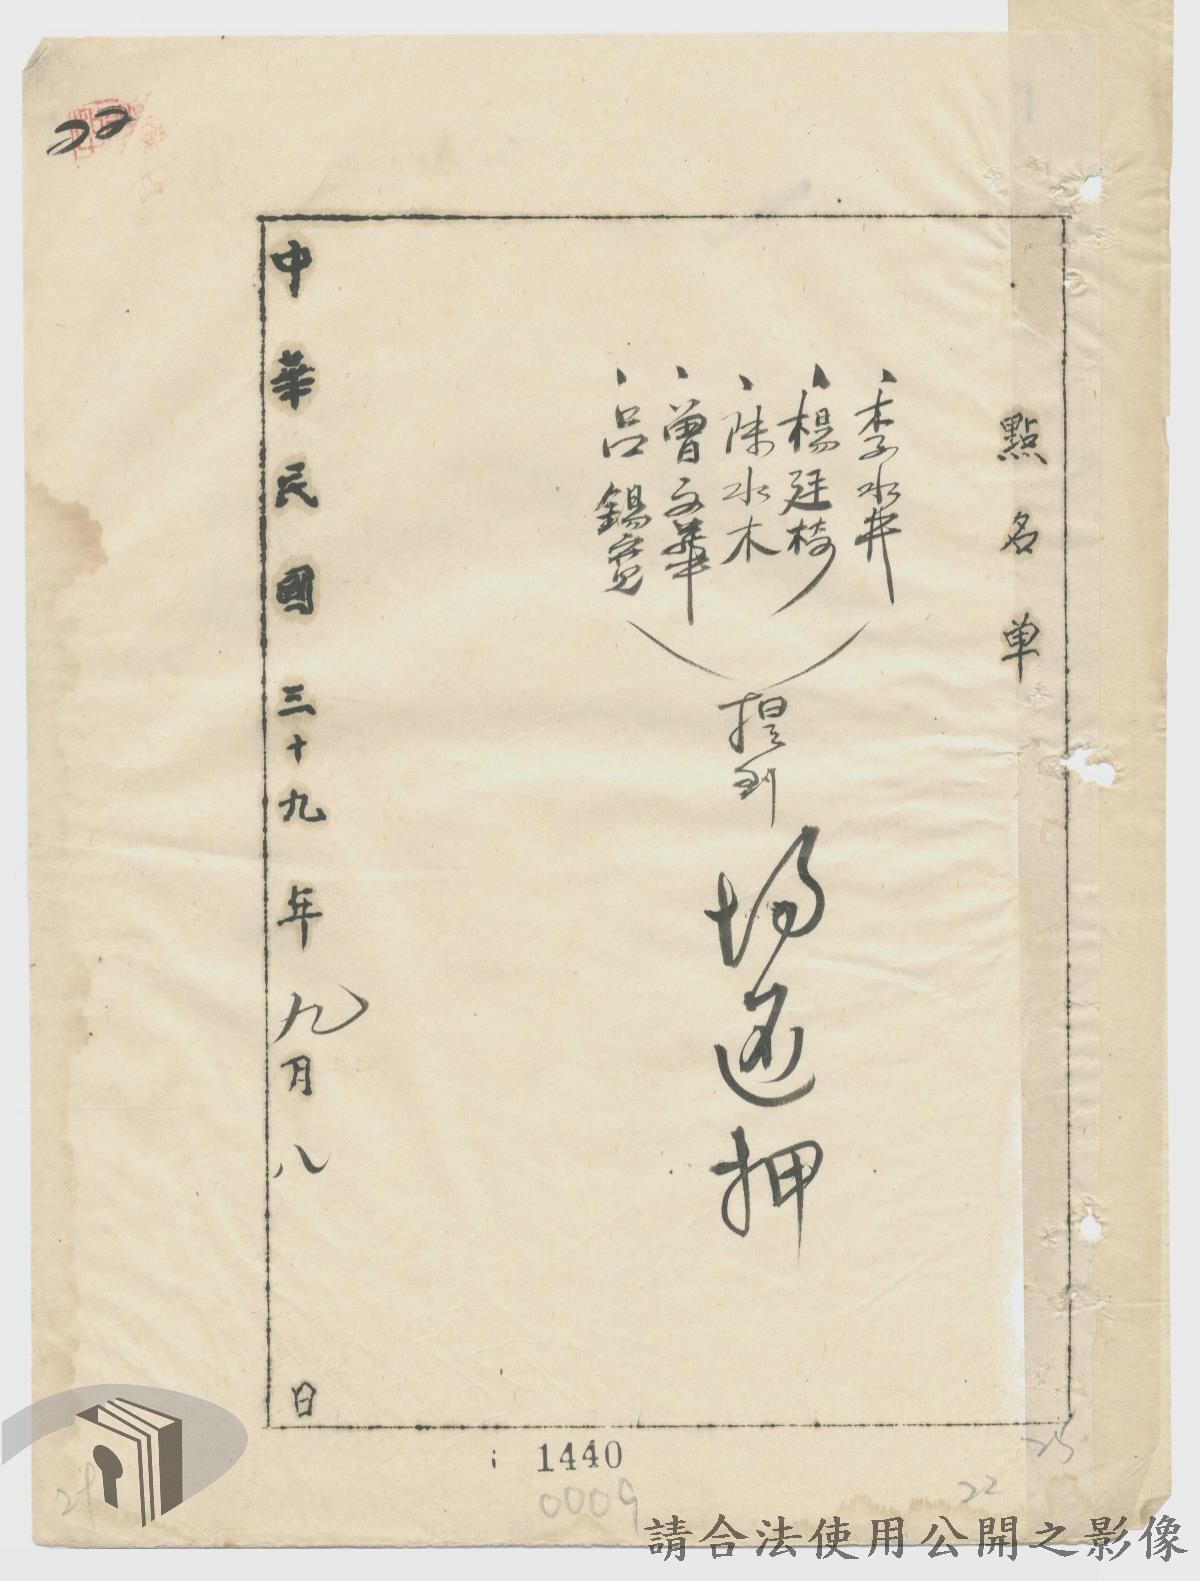 22
點名單
、李水井
、楊廷椅
、陳水木
、曾文華
、呂錫寬
提到
還押
中華民國三十九年九月八日
1440
0009
22
25
請合法使用公開之影像